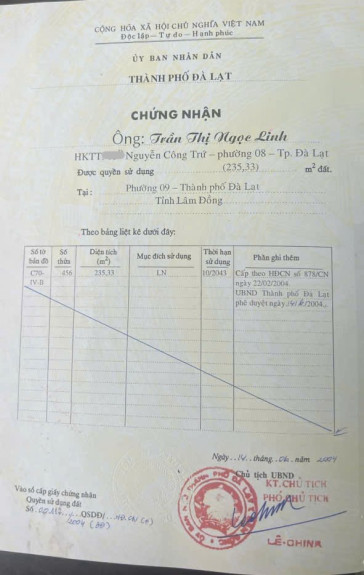 CỘNG HÒA XÃ HỘI CHỦ NGHĨA VIỆT NAM
Độc lập – Tự do – Hạnh phúc
ỦY BAN NHÂN DÂN
THÀNH PHỐ ĐÀ LẠT
CHỨNG NHẬN
Ông: Trần Thị Ngọc Linh
HKTT: Nguyễn Công Trứ – phường 08 – Tp. Đà Lạt
Được quyền sử dụng (235,33) m² đất.
Tại: Phường 09 – Thành phố Đà Lạt
Tỉnh Lâm Đồng
Theo bảng liệt kê dưới đây:
Số tờ bản đồ Số thửa Diện tích (m²) Mục đích sử dụng Thời hạn sử dụng Phần ghi thêm
C70-IV-II 235,33 LN 10/2043 Cấp theo HĐCN số 878/CN
ngày 22/02/2004.
UBND Thành phố Đà Lạt
phê duyệt ngày /2004.
Ngày tháng năm 2004
Chủ tịch UBND
KT. CHỦ TỊCH
PHÓ CHỦ TỊCH
Vào sổ cấp giấy chứng nhận
Quyền sử dụng đất
Số QSDĐ/
2004